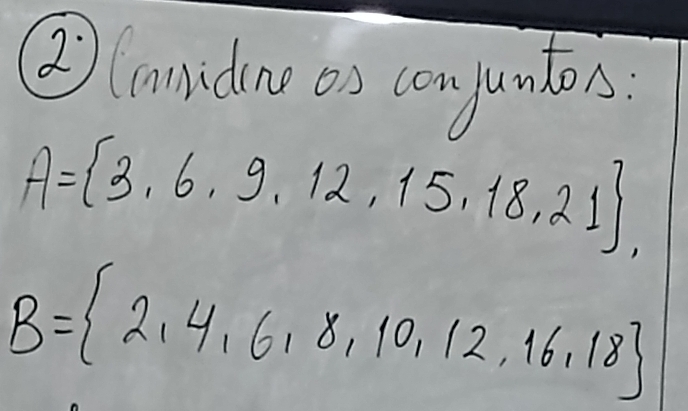 2. Considere os conjuntos:
A={3, 6, 9, 12, 15, 18, 21},
B={2, 4, 6, 8, 10, 12, 16, 18}